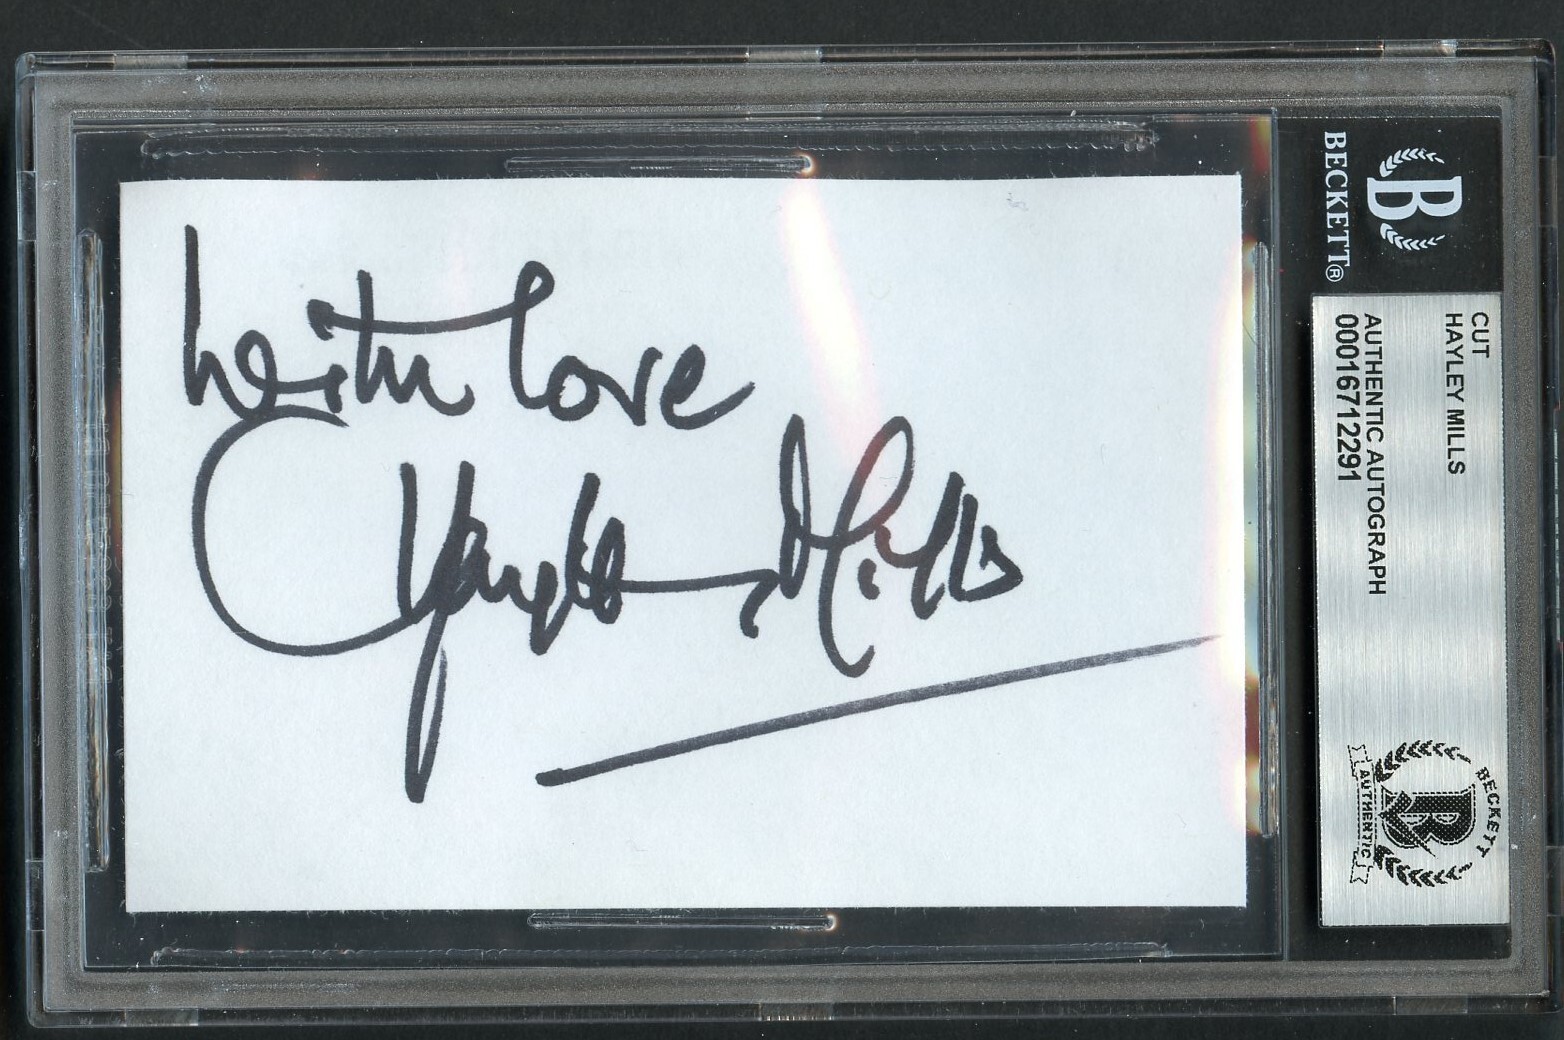 with love
Hayley Mills
B
BECKETT®
CUT
HAYLEY MILLS
AUTHENTIC AUTOGRAPH
00016712291
BECKETT
B
AUTHENTIC